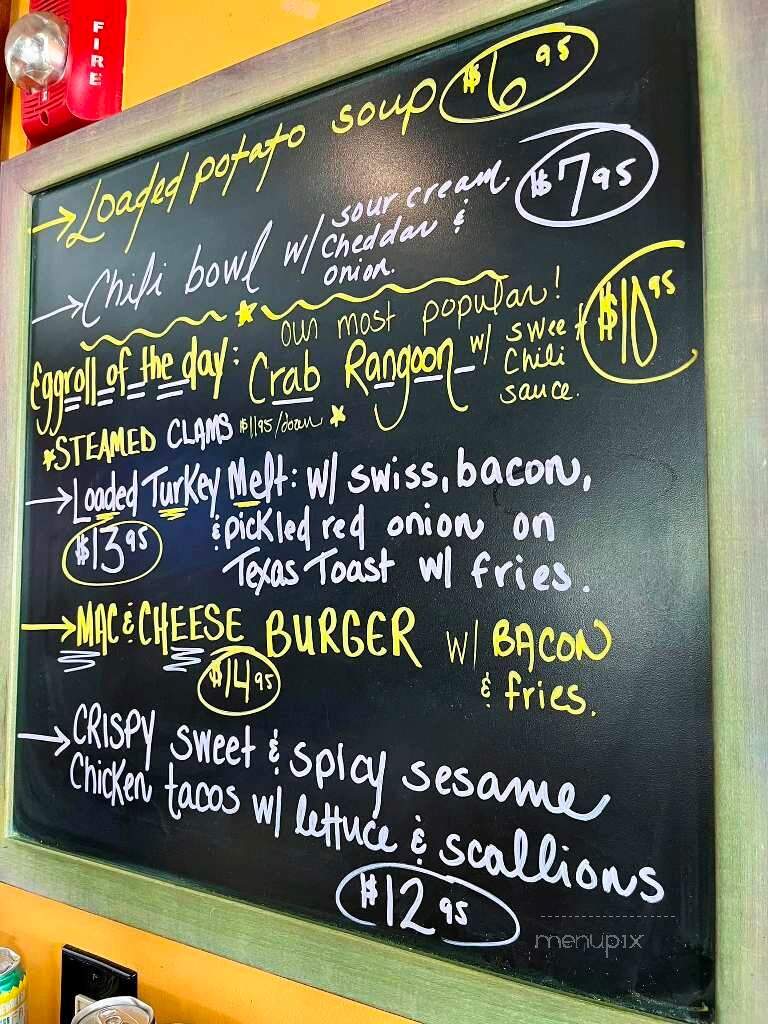 FIRE
→Loaded potato soup $6.95
→Chili bowl w/ sour cream $7.95
Cheddar &
onion.
our most popular!
Eggroll of the day: Crab Rangoon w/ sweet $10.95
Chili
sauce.
★STEAMED CLAMS $11.95/dozen ★
→Loaded Turkey Melt: w/ swiss, bacon,
$13.95 & pickled red onion on
Texas Toast w/ fries.
→MAC & CHEESE BURGER w/ BACON
$14.95 & fries.
→CRISPY sweet & spicy sesame
Chicken tacos w/ lettuce & scallions
$12.95
menupix